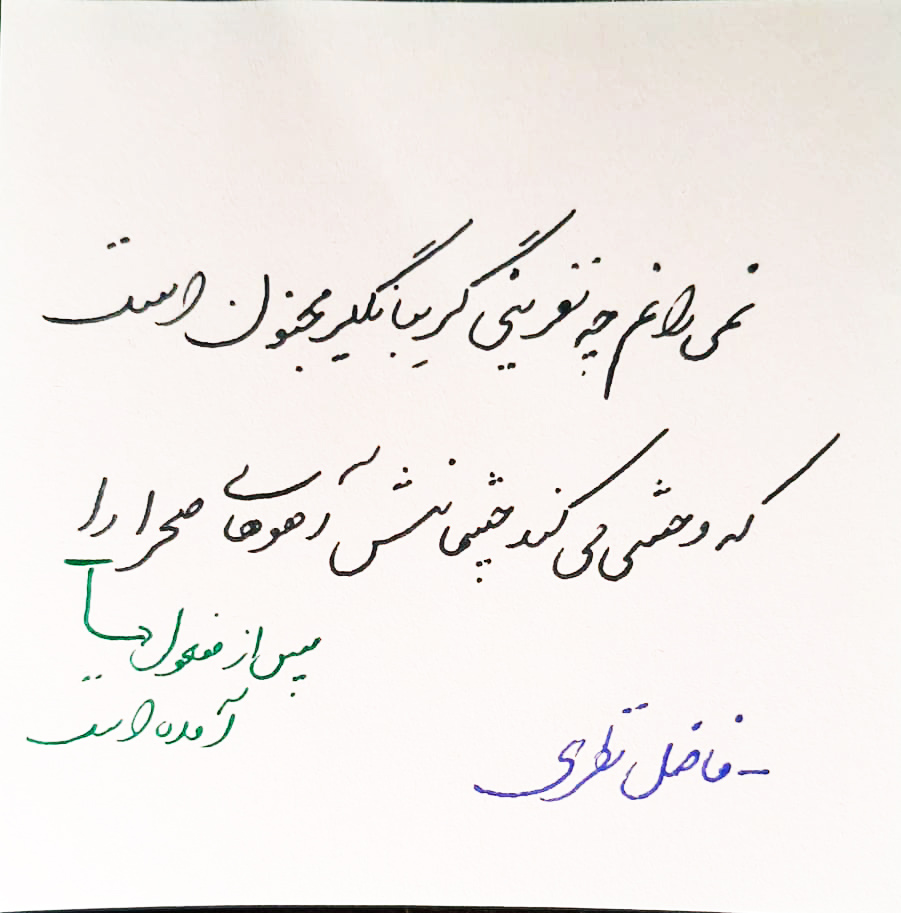 نمی دانم چه نفرینی گریبانگیر مجنون است
که وحشی می کند چشمانش آهوهای صحرا را
پس از مفعول
آمده است
- فاضل نظری